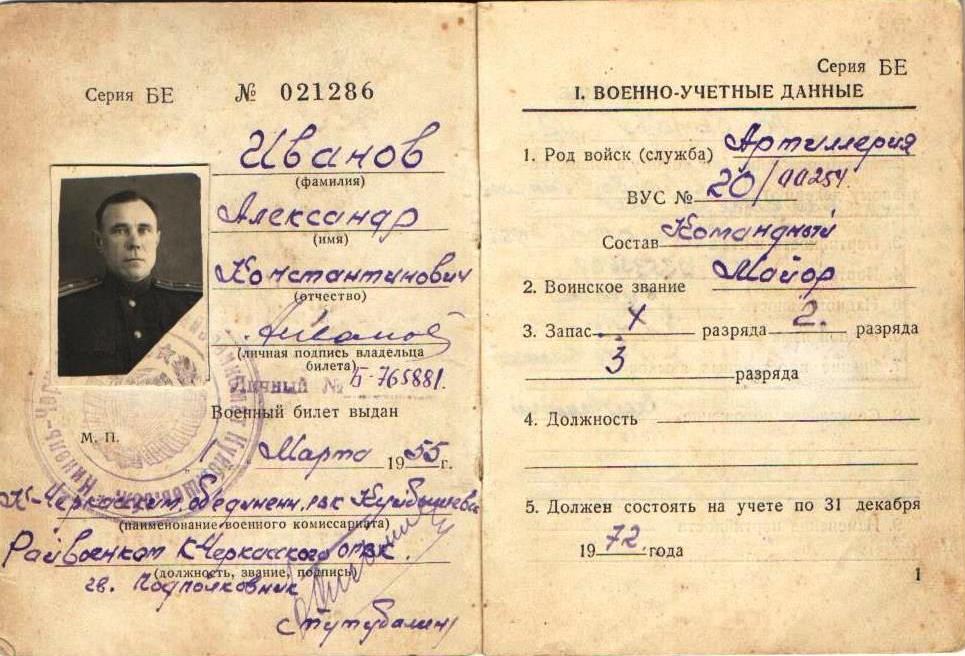 Серия БЕ № 021286
Иванов
(фамилия)
Александр
(имя)
Константинович
(отчество)
(личная подпись владельца
билета)
Личный № Б-765881.
Военный билет выдан
М. П.
Марта 1955 г.
К-Черкасским обединенн. рвк Куйбышевской
(наименование военного комиссариата)
Райвоенком К.Черкасского орвк.
(должность, звание, подпись)
гв. Подполковник
Серия БЕ
I. ВОЕННО-УЧЕТНЫЕ ДАННЫЕ
1. Род войск (служба) Артиллерия
ВУС № 20/
Состав Командный
2. Воинское звание Майор
3. Запас разряда 2. разряда
3 разряда
4. Должность
5. Должен состоять на учете по 31 декабря
1972 года
1